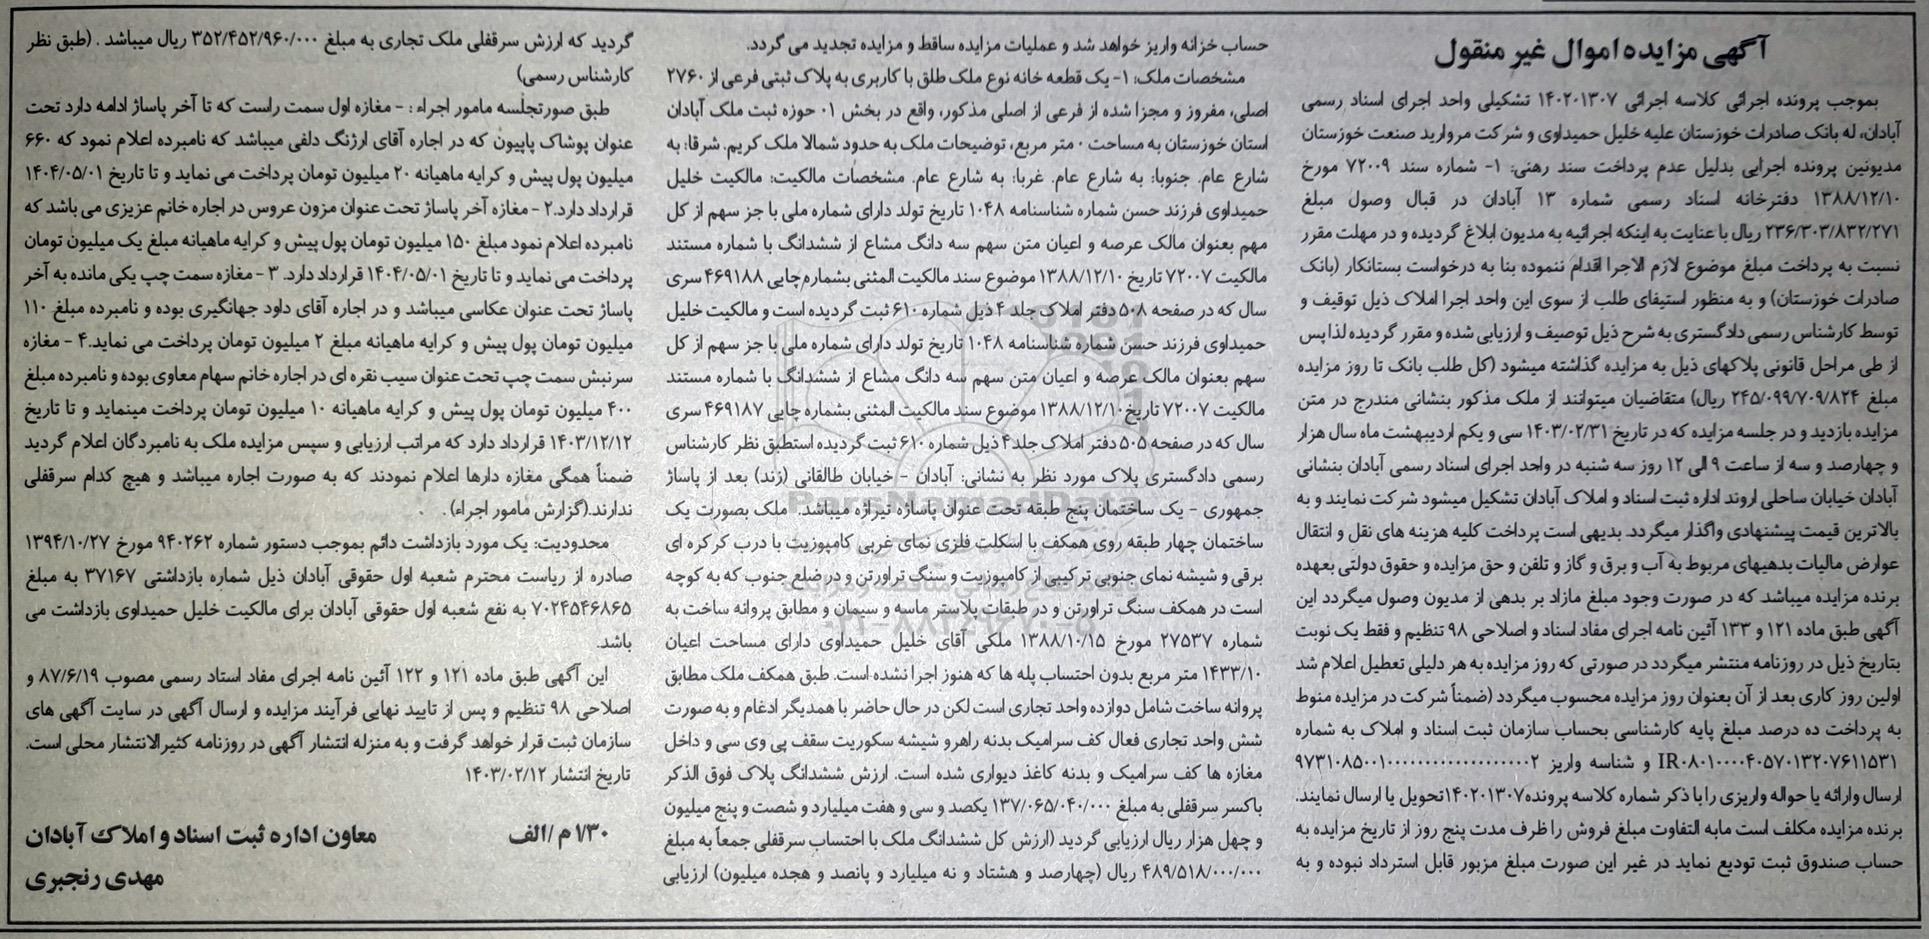 آگهی مزایده اموال غیر منقول
بموجب پرونده اجرائی کلاسه اجرائی ۱۴۰۲۰۱۳۰۷ تشکیلی واحد اجرای اسناد رسمی
آبادان، له بانک صادرات خوزستان علیه خلیل حمیداوی و شرکت مروارید صنعت خوزستان
مدیونین پرونده اجرایی بدلیل عدم پرداخت سند رهنی: ۱- شماره سند ۷۲۰۰۹ مورخ
۱۳۸۸/۱۲/۱۰ دفترخانه اسناد رسمی شماره ۱۳ آبادان در قبال وصول مبلغ
۲۳۶/۳۰۳/۸۳۲/۲۷۱ ریال با عنایت به اینکه اجرائیه به مدیون ابلاغ گردیده و در مهلت مقرر
نسبت به پرداخت مبلغ موضوع لازم الاجرا اقدام ننموده بنا به درخواست بستانکار (بانک
صادرات خوزستان) و به منظور استیفای طلب از سوی این واحد اجرا املاک ذیل توقیف و
توسط کارشناس رسمی دادگستری به شرح ذیل توصیف و ارزیابی شده و مقرر گردیده لذا پس
از طی مراحل قانونی پلاکهای ذیل به مزایده گذاشته میشود (کل طلب بانک تا روز مزایده
مبلغ ۲۴۵/۰۹۹/۷۰۹/۸۲۴ ریال) متقاضیان میتوانند از ملک مذکور بنشانی مندرج در متن
مزایده بازدید و در جلسه مزایده که در تاریخ ۱۴۰۳/۰۲/۳۱ سی و یکم اردیبهشت ماه سال هزار
و چهارصد و سه از ساعت ۹ الی ۱۲ روز سه شنبه در واحد اجرای اسناد رسمی آبادان بنشانی
آبادان خیابان ساحلی اروند اداره ثبت اسناد و املاک آبادان تشکیل میشود شرکت نمایند و به
بالاترین قیمت پیشنهادی واگذار میگردد. بدیهی است پرداخت کلیه هزینه های نقل و انتقال
عوارض مالیات بدهیهای مربوط به آب و برق و گاز و تلفن و حق مزایده و حقوق دولتی بعهده
برنده مزایده میباشد که در صورت وجود مبلغ مازاد بر بدهی از مدیون وصول میگردد این
آگهی طبق ماده ۱۲۱ و ۱۳۳ آئین نامه اجرای مفاد اسناد و اصلاحی ۹۸ تنظیم و فقط یک نوبت
بتاریخ ذیل در روزنامه منتشر میگردد در صورتی که روز مزایده به هر دلیلی تعطیل اعلام شد
اولین روز کاری بعد از آن بعنوان روز مزایده محسوب میگردد (ضمناً شرکت در مزایده منوط
به پرداخت ده درصد مبلغ پایه کارشناسی بحساب سازمان ثبت اسناد و املاک به شماره
IR۰۸۰۱۰۰۰۰۴۰۵۷۰۱۳۲۰۷۶۱۱۵۳۱ و شناسه واریز
ارسال وارائه یا حواله واریزی را با ذکر شماره کلاسه پرونده ۱۴۰۲۰۱۳۰۷ تحویل یا ارسال نمایند.
برنده مزایده مکلف است مابه التفاوت مبلغ فروش را ظرف مدت پنج روز از تاریخ مزایده به
حساب صندوق ثبت تودیع نماید در غیر این صورت مبلغ مزبور قابل استرداد نبوده و به
حساب خزانه واریز خواهد شد و عملیات مزایده ساقط و مزایده تجدید می گردد.
مشخصات ملک: ۱- یک قطعه خانه نوع ملک طلق با کاربری به پلاک ثبتی فرعی از ۲۷۶۰
اصلی، مفروز و مجزا شده از فرعی از اصلی مذکور، واقع در بخش ۰۱ حوزه ثبت ملک آبادان
استان خوزستان به مساحت ۰ متر مربع، توضیحات ملک به حدود شمالا ملک کریم. شرقا: به
شارع عام. جنوبا: به شارع عام. غربا: به شارع عام. مشخصات مالکیت: مالکیت خلیل
حمیداوی فرزند حسن شماره شناسنامه ۱۰۴۸ تاریخ تولد دارای شماره ملی با جز سهم از کل
مهم بعنوان مالک عرصه و اعیان متن سهم سه دانگ مشاع از ششدانگ با شماره مستند
مالکیت ۷۲۰۰۷ تاریخ ۱۳۸۸/۱۲/۱۰ موضوع سند مالکیت المثنی بشماره چاپی ۴۶۹۱۸۸ سری
سال که در صفحه ۵۰۸ دفتر املاک جلد ۴ ذیل شماره ۶۱۰ ثبت گردیده است و مالکیت خلیل
حمیداوی فرزند حسن شماره شناسنامه ۱۰۴۸ تاریخ تولد دارای شماره ملی با جز سهم از کل
سهم بعنوان مالک عرصه و اعیان متن سهم سه دانگ مشاع از ششدانگ با شماره مستند
مالکیت ۷۲۰۰۷ تاریخ ۱۳۸۸/۱۲/۱۰ موضوع سند مالکیت المثنی بشماره چاپی ۴۶۹۱۸۷ سری
سال که در صفحه ۵۰۵ دفتر املاک جلد ۴ ذیل شماره ۶۱۰ ثبت گردیده استطبق نظر کارشناس
رسمی دادگستری پلاک مورد نظر به نشانی: آبادان - خیابان طالقانی (زند) بعد از پاساژ
جمهوری - یک ساختمان پنج طبقه تحت عنوان پاساژه تیراژه میباشد. ملک بصورت یک
ساختمان چهار طبقه روی همکف با اسکلت فلزی نمای غربی کامپوزیت با درب کرکره ای
برقی و شیشه نمای جنوبی ترکیبی از کامپوزیت و سنگ تراورتن و در ضلع جنوب که به کوچه
است در همکف سنگ تراورتن و در طبقات پلاستر ماسه و سیمان و مطابق پروانه ساخت به
شماره ۲۷۵۳۷ مورخ ۱۳۸۸/۱۰/۱۵ ملکی آقای خلیل حمیداوی دارای مساحت اعیان
۱۴۳۳/۱۰ متر مربع بدون احتساب پله ها که هنوز اجرا نشده است. طبق همکف ملک مطابق
پروانه ساخت شامل دوازده واحد تجاری است لکن در حال حاضر با همدیگر ادغام و به صورت
شش واحد تجاری فعال کف سرامیک بدنه راهرو شیشه سکوریت سقف پی وی سی و داخل
مغازه ها کف سرامیک و بدنه کاغذ دیواری شده است. ارزش ششدانگ پلاک فوق الذکر
باکسر سرقفلی به مبلغ ۱۳۷/۰۶۵/۰۴۰/۰۰۰ یکصد و سی و هفت میلیارد و شصت و پنج میلیون
و چهل هزار ریال ارزیابی گردید (ارزش کل ششدانگ ملک با احتساب سرقفلی جمعاً به مبلغ
۴۸۹/۵۱۸/۰۰۰/۰۰۰ ریال (چهارصد و هشتاد و نه میلیارد و پانصد و هجده میلیون) ارزیابی
گردید که ارزش سرقفلی ملک تجاری به مبلغ ۳۵۲/۴۵۲/۹۶۰/۰۰۰ ریال میباشد . (طبق نظر
کارشناس رسمی)
طبق صورتجلسه مامور اجراء : - مغازه اول سمت راست که تا آخر پاساژ ادامه دارد تحت
عنوان پوشاک پاپیون که در اجاره آقای ارژنگ دلفی میباشد که نامبرده اعلام نمود که ۶۶۰
میلیون پول پیش و کرایه ماهیانه ۲۰ میلیون تومان پرداخت می نماید و تا تاریخ ۱۴۰۴/۰۵/۰۱
قرارداد دارد.۲ - مغازه آخر پاساژ تحت عنوان مزون عروس در اجاره خانم عزیزی می باشد که
نامبرده اعلام نمود مبلغ ۱۵۰ میلیون تومان پول پیش و کرایه ماهیانه مبلغ یک میلیون تومان
پرداخت می نماید و تا تاریخ ۱۴۰۴/۰۵/۰۱ قرارداد دارد. ۳ - مغازه سمت چپ یکی مانده به آخر
پاساژ تحت عنوان عکاسی میباشد و در اجاره آقای داود جهانگیری بوده و نامبرده مبلغ ۱۱۰
میلیون تومان پول پیش و کرایه ماهیانه مبلغ ۲ میلیون تومان پرداخت می نماید.۴ - مغازه
سرنبش سمت چپ تحت عنوان سیب نقره ای در اجاره خانم سهام معاوی بوده و نامبرده مبلغ
۴۰۰ میلیون تومان پول پیش و کرایه ماهیانه ۱۰ میلیون تومان پرداخت مینماید و تا تاریخ
۱۴۰۳/۱۲/۱۲ قرارداد دارد که مراتب ارزیابی و سپس مزایده ملک به نامبردگان اعلام گردید
ضمناً همگی مغازه دارها اعلام نمودند که به صورت اجاره میباشد و هیچ کدام سرقفلی
ندارند.(گزارش مامور اجراء) .
محدودیت: یک مورد بازداشت دائم بموجب دستور شماره ۹۴۰۲۶۲ مورخ ۱۳۹۴/۱۰/۲۷
صادره از ریاست محترم شعبه اول حقوقی آبادان ذیل شماره بازداشتی ۳۷۱۶۷ به مبلغ
۷۰۲۴۵۴۶۸۶۵ به نفع شعبه اول حقوقی آبادان برای مالکیت خلیل حمیداوی بازداشت می
باشد.
این آگهی طبق ماده ۱۲۱ و ۱۲۲ آئین نامه اجرای مفاد اسناد رسمی مصوب ۸۷/۶/۱۹ و
اصلاحی ۹۸ تنظیم و پس از تایید نهایی فرآیند مزایده و ارسال آگهی در سایت آگهی های
سازمان ثبت قرار خواهد گرفت و به منزله انتشار آگهی در روزنامه کثیرالانتشار محلی است.
تاریخ انتشار ۱۴۰۳/۰۲/۱۲
۱/۳۰ م /الف
معاون اداره ثبت اسناد و املاک آبادان
مهدی رنجبری
ParsNamadData